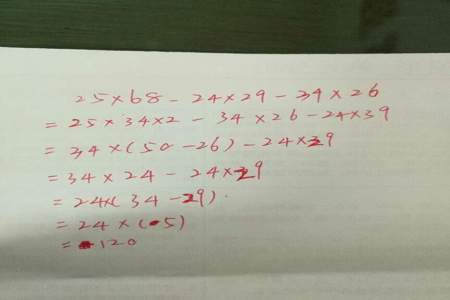 25×68-24×29-34×26
=25×34×2-34×26-24×39
=34×(50-26)-24×29
=34×24-24×29
=24×(34-29)
=24×(5)
=120